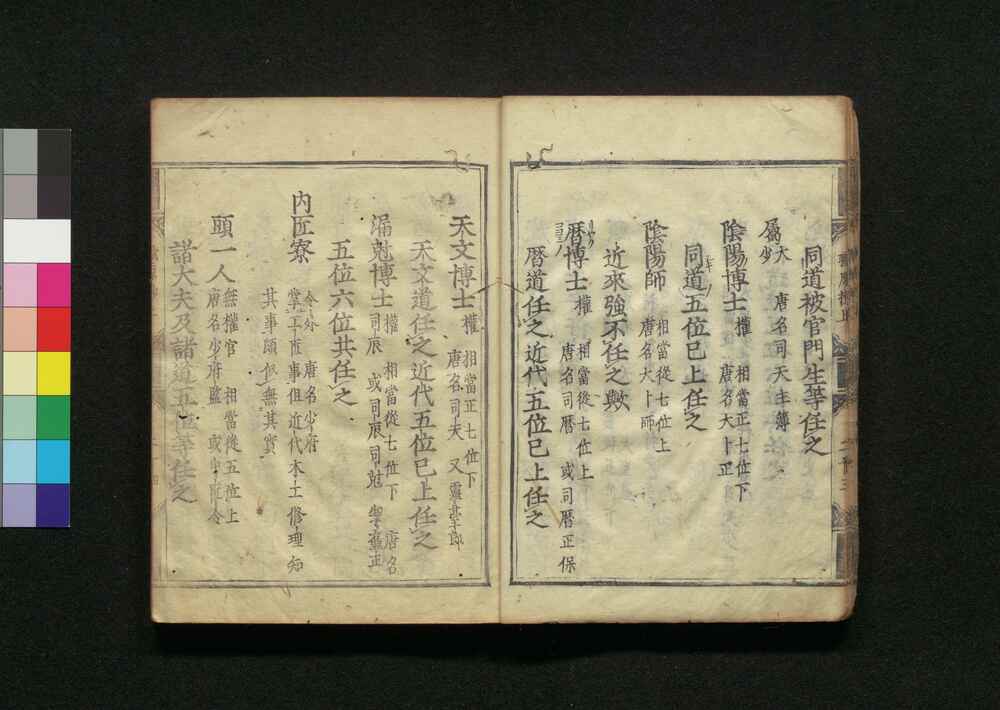 同道被官門生等任之
属大少 唐名司天主簿
陰陽博士 權 相當正七位下 唐名大卜正
同道五位已上任之
陰陽師 相當從七位上 唐名大卜師
近來強不任之歟
暦博士 權 相當從七位上 唐名司暦 或司暦正保
暦道任之近代五位已上任之
天文博士 權 相當正七位下 唐名司天 又靈臺郎
天文道任之近代五位已上任之
漏尅博士 權 相當從七位下 唐名司辰 或司辰司尅 挈壺正
五位六位共任之
内匠寮 令外 唐名少府 掌工匠事但近代木工修理知其事頗似無其實
頭一人 無權官 相當從五位上 唐名少府監 或内匠令
諸大夫及諸道五位等任之